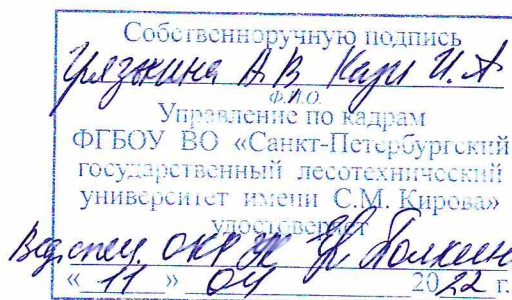 Собственноручную подпись
А В И. А
Ф.И.О.
Управление по кадрам
ФГБОУ ВО «Санкт-Петербургский
государственный лесотехнический
университет имени С.М. Кирова»
удостоверяет
« 11 » 04 2022 г.